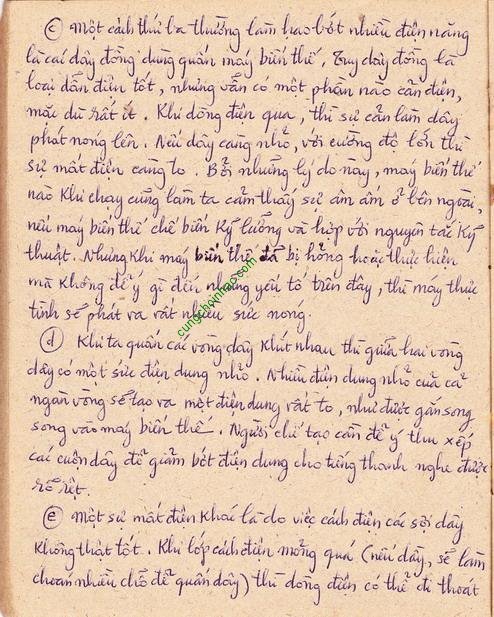 c) Một cách thứ ba thường làm hao bớt nhiều điện năng
là các dây đồng dùng quấn máy biến thế. Tuy dây đồng là
loại dẫn điện tốt, nhưng vẫn có một phần nào cản điện,
mặc dù rất ít. Khi dòng điện qua, thì sự cản làm dây
phát nóng lên. Nếu dây càng nhỏ, với cường độ lớn thì
sự mất điện càng to. Bởi những lý do này, máy biến thế
nào khi chạy cũng làm ta cảm thấy sự âm ấm ở bên ngoài,
nếu máy biến thế chế biến kỹ lưỡng và hợp với nguyên tắc kỹ
thuật. Nhưng khi máy biến thế đã bị hỏng hoặc thực hiện
mà không để ý gì đến những yếu tố trên đây, thì máy thực
tình sẽ phát ra rất nhiều sức nóng.
cungchoinhac.com
d) Khi ta quấn các vòng dây khít nhau thì giữa hai vòng
dây có một sức điện dung nhỏ. Nhiều điện dung nhỏ của cả
ngàn vòng sẽ tạo ra một điện dung rất to, như được gắn song
song vào máy biến thế. Người chế tạo cần để ý thu xếp
cái cuộn dây để giảm bớt điện dung cho tiếng thanh nghe được
rõ rệt.
e) Một sự mất điện khác là do việc cách điện các sợi dây
không thật tốt. Khi lớp cách điện mỏng quá (nếu dây, sẽ làm
choán nhiều chỗ để quấn dây) thì dòng điện có thể đi thoát